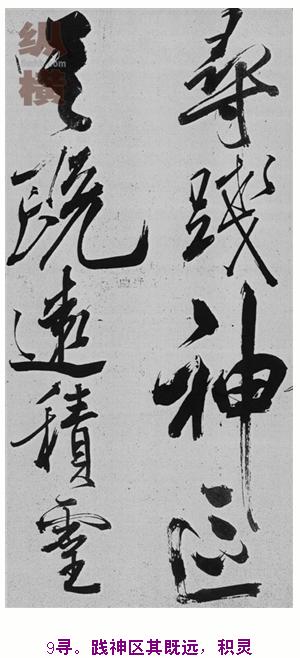 尋踐神區
其既遠積靈
纵横
9寻。践神区其既远，积灵